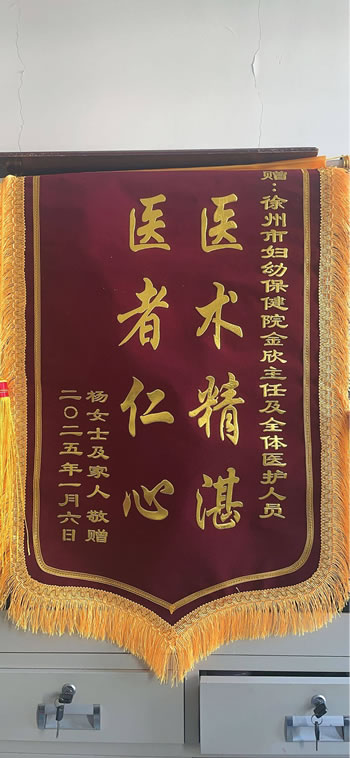 赠：徐州市妇幼保健院金欣主任及全体医护人员
医术精湛
医者仁心
杨女士及家人 敬赠
二〇二五年一月六日